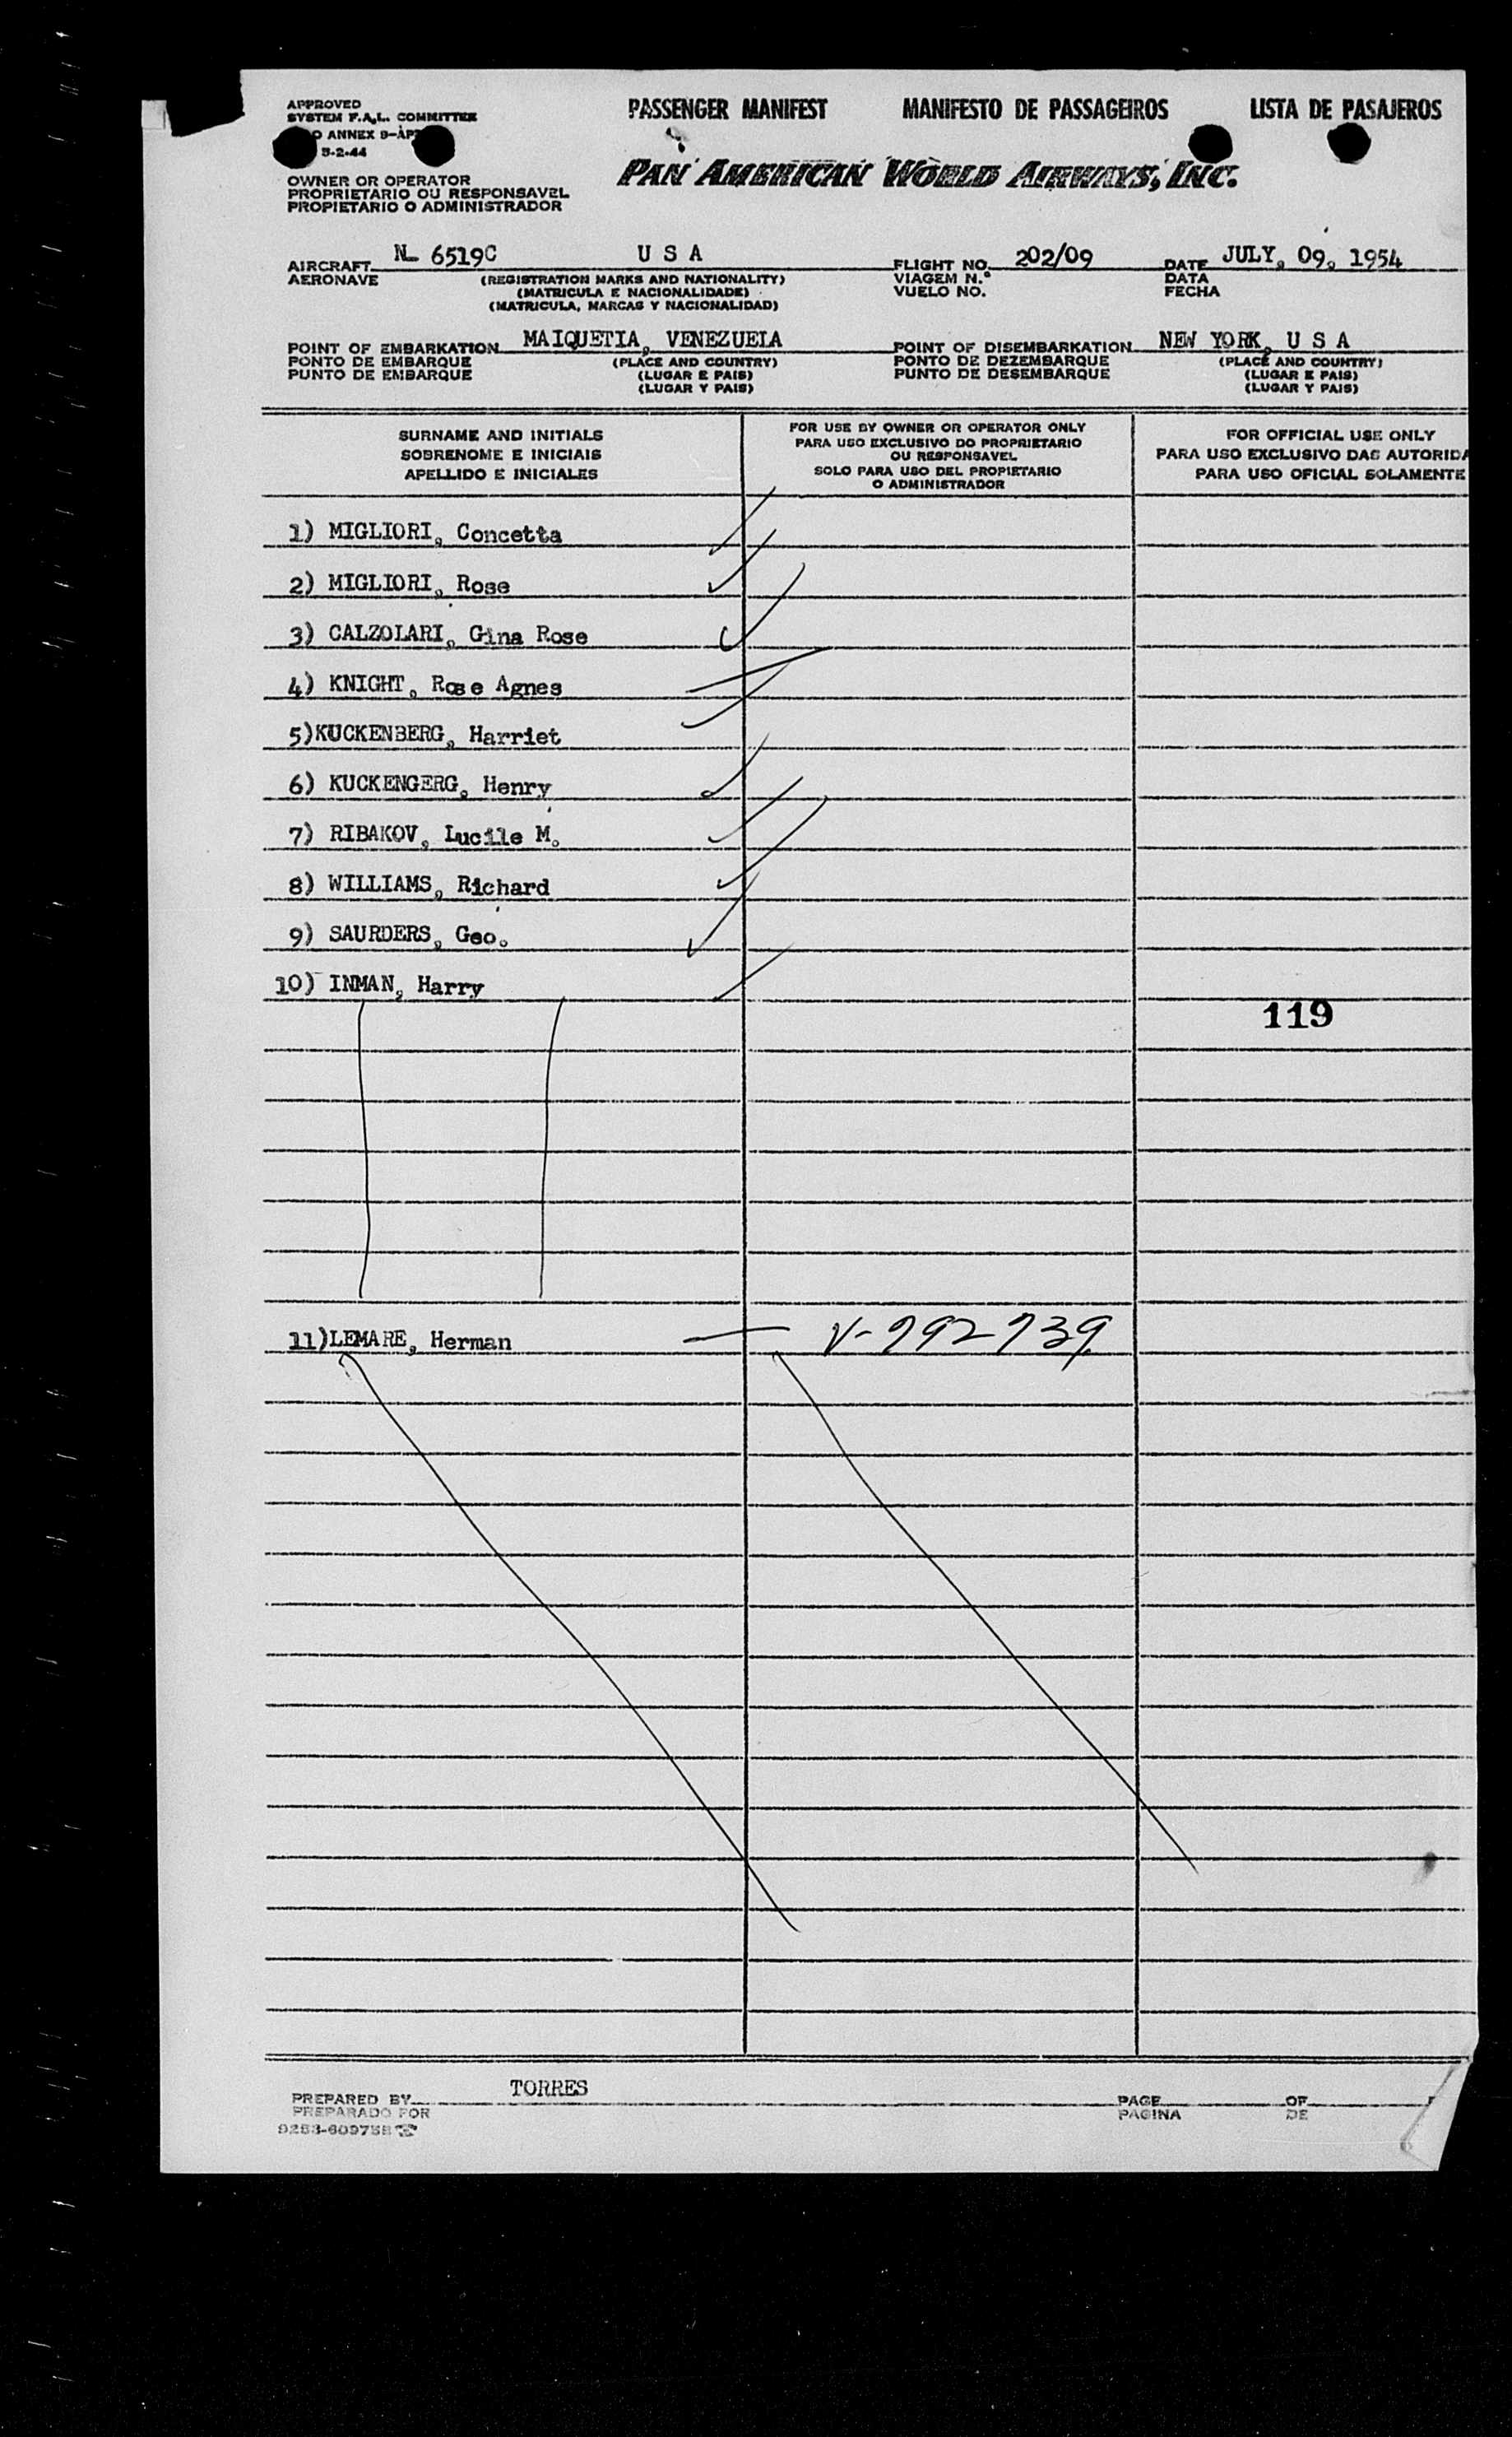 APPROVED
SYSTEM F.A.L. COMMITTEE
O ANNEX 9-AP
5-2-44
PASSENGER MANIFEST MANIFESTO DE PASSAGEIROS LISTA DE PASAJEROS
PAN AMERICAN WORLD AIRWAYS, INC.
OWNER OR OPERATOR
PROPRIETARIO OU RESPONSAVEL
PROPIETARIO O ADMINISTRADOR
AIRCRAFT N- 6519C U S A FLIGHT NO. 202/09 DATE JULY, 09, 1954
AERONAVE (REGISTRATION MARKS AND NATIONALITY) VIAGEM N.º DATA
(MATRICULA E NACIONALIDADE) VUELO NO. FECHA
(MATRICULA, MARCAS Y NACIONALIDAD)
POINT OF EMBARKATION MAIQUETIA, VENEZUELA POINT OF DISEMBARKATION NEW YORK, U S A
PONTO DE EMBARQUE (PLACE AND COUNTRY) PONTO DE DEZEMBARQUE (PLACE AND COUNTRY)
PUNTO DE EMBARQUE (LUGAR E PAIS) PUNTO DE DESEMBARQUE (LUGAR E PAIS)
(LUGAR Y PAIS) (LUGAR Y PAIS)
SURNAME AND INITIALS
SOBRENOME E INICIAIS
APELLIDO E INICIALES
FOR USE BY OWNER OR OPERATOR ONLY
PARA USO EXCLUSIVO DO PROPRIETARIO
OU RESPONSAVEL
SOLO PARA USO DEL PROPIETARIO
O ADMINISTRADOR
FOR OFFICIAL USE ONLY
PARA USO EXCLUSIVO DAS AUTORIDA
PARA USO OFICIAL SOLAMENTE
1) MIGLIORI, Concetta
2) MIGLIORI, Rose
3) CALZOLARI, Gina Rose
4) KNIGHT, Rose Agnes
5)KUCKENBERG, Harriet
6) KUCKENGERG, Henry
7) RIBAKOV, Lucile M.
8) WILLIAMS, Richard
9) SAURDERS, Geo.
10) INMAN, Harry
119
11)LEMARE, Herman V-992939
PREPARED BY TORRES PAGE OF
PREPARADO POR PAGINA DE